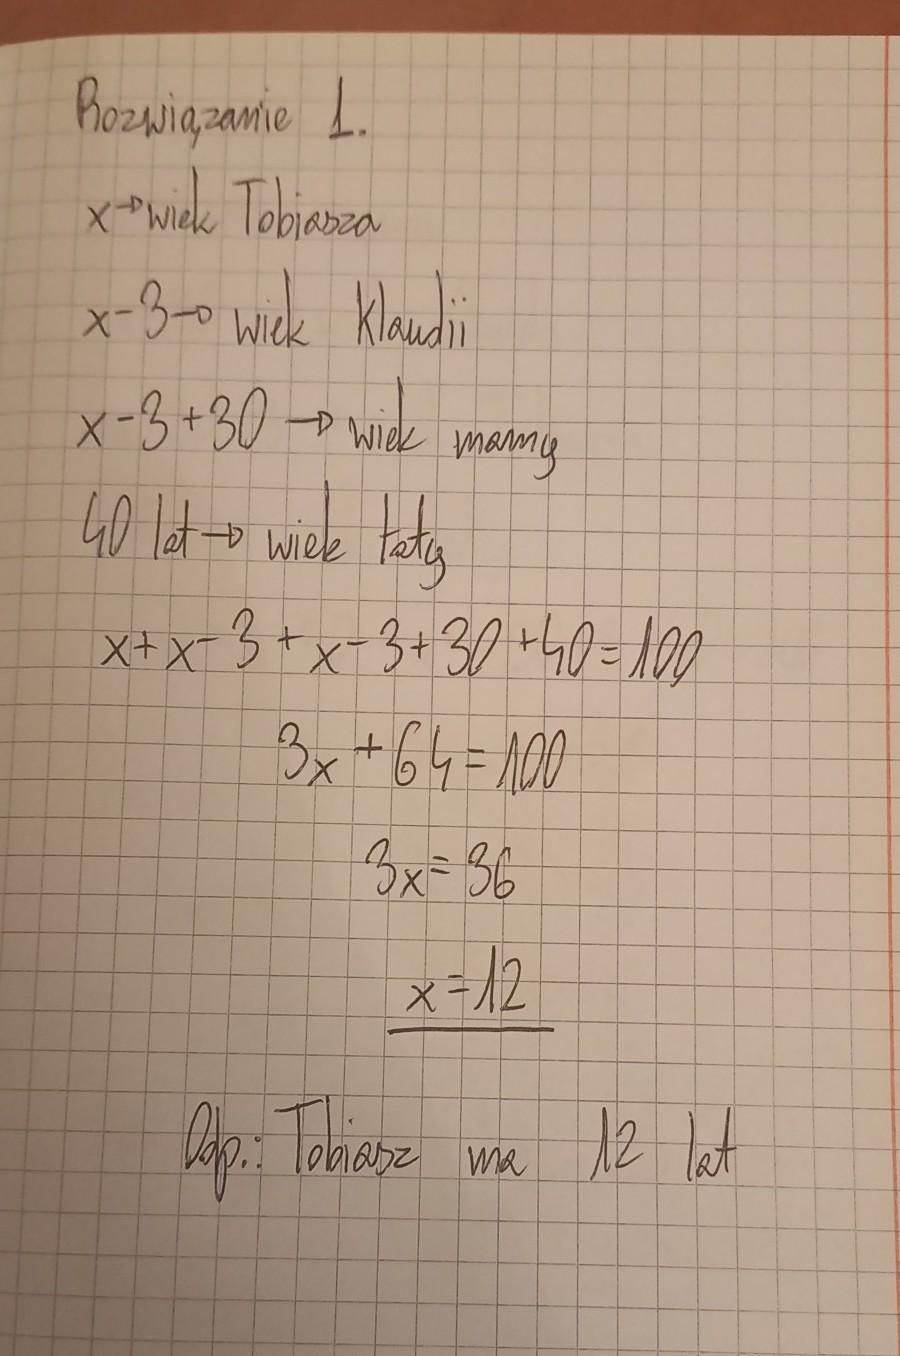 Rozwiązanie 1.
x→wiek Tobiasza
x-3→ wiek Klaudii
x-3+30 → wiek mamy
40 lat→ wiek taty
x+x-3+x-3+30+40=100
3x+64=100
3x=36
x=12
Odp.: Tobiasz ma 12 lat